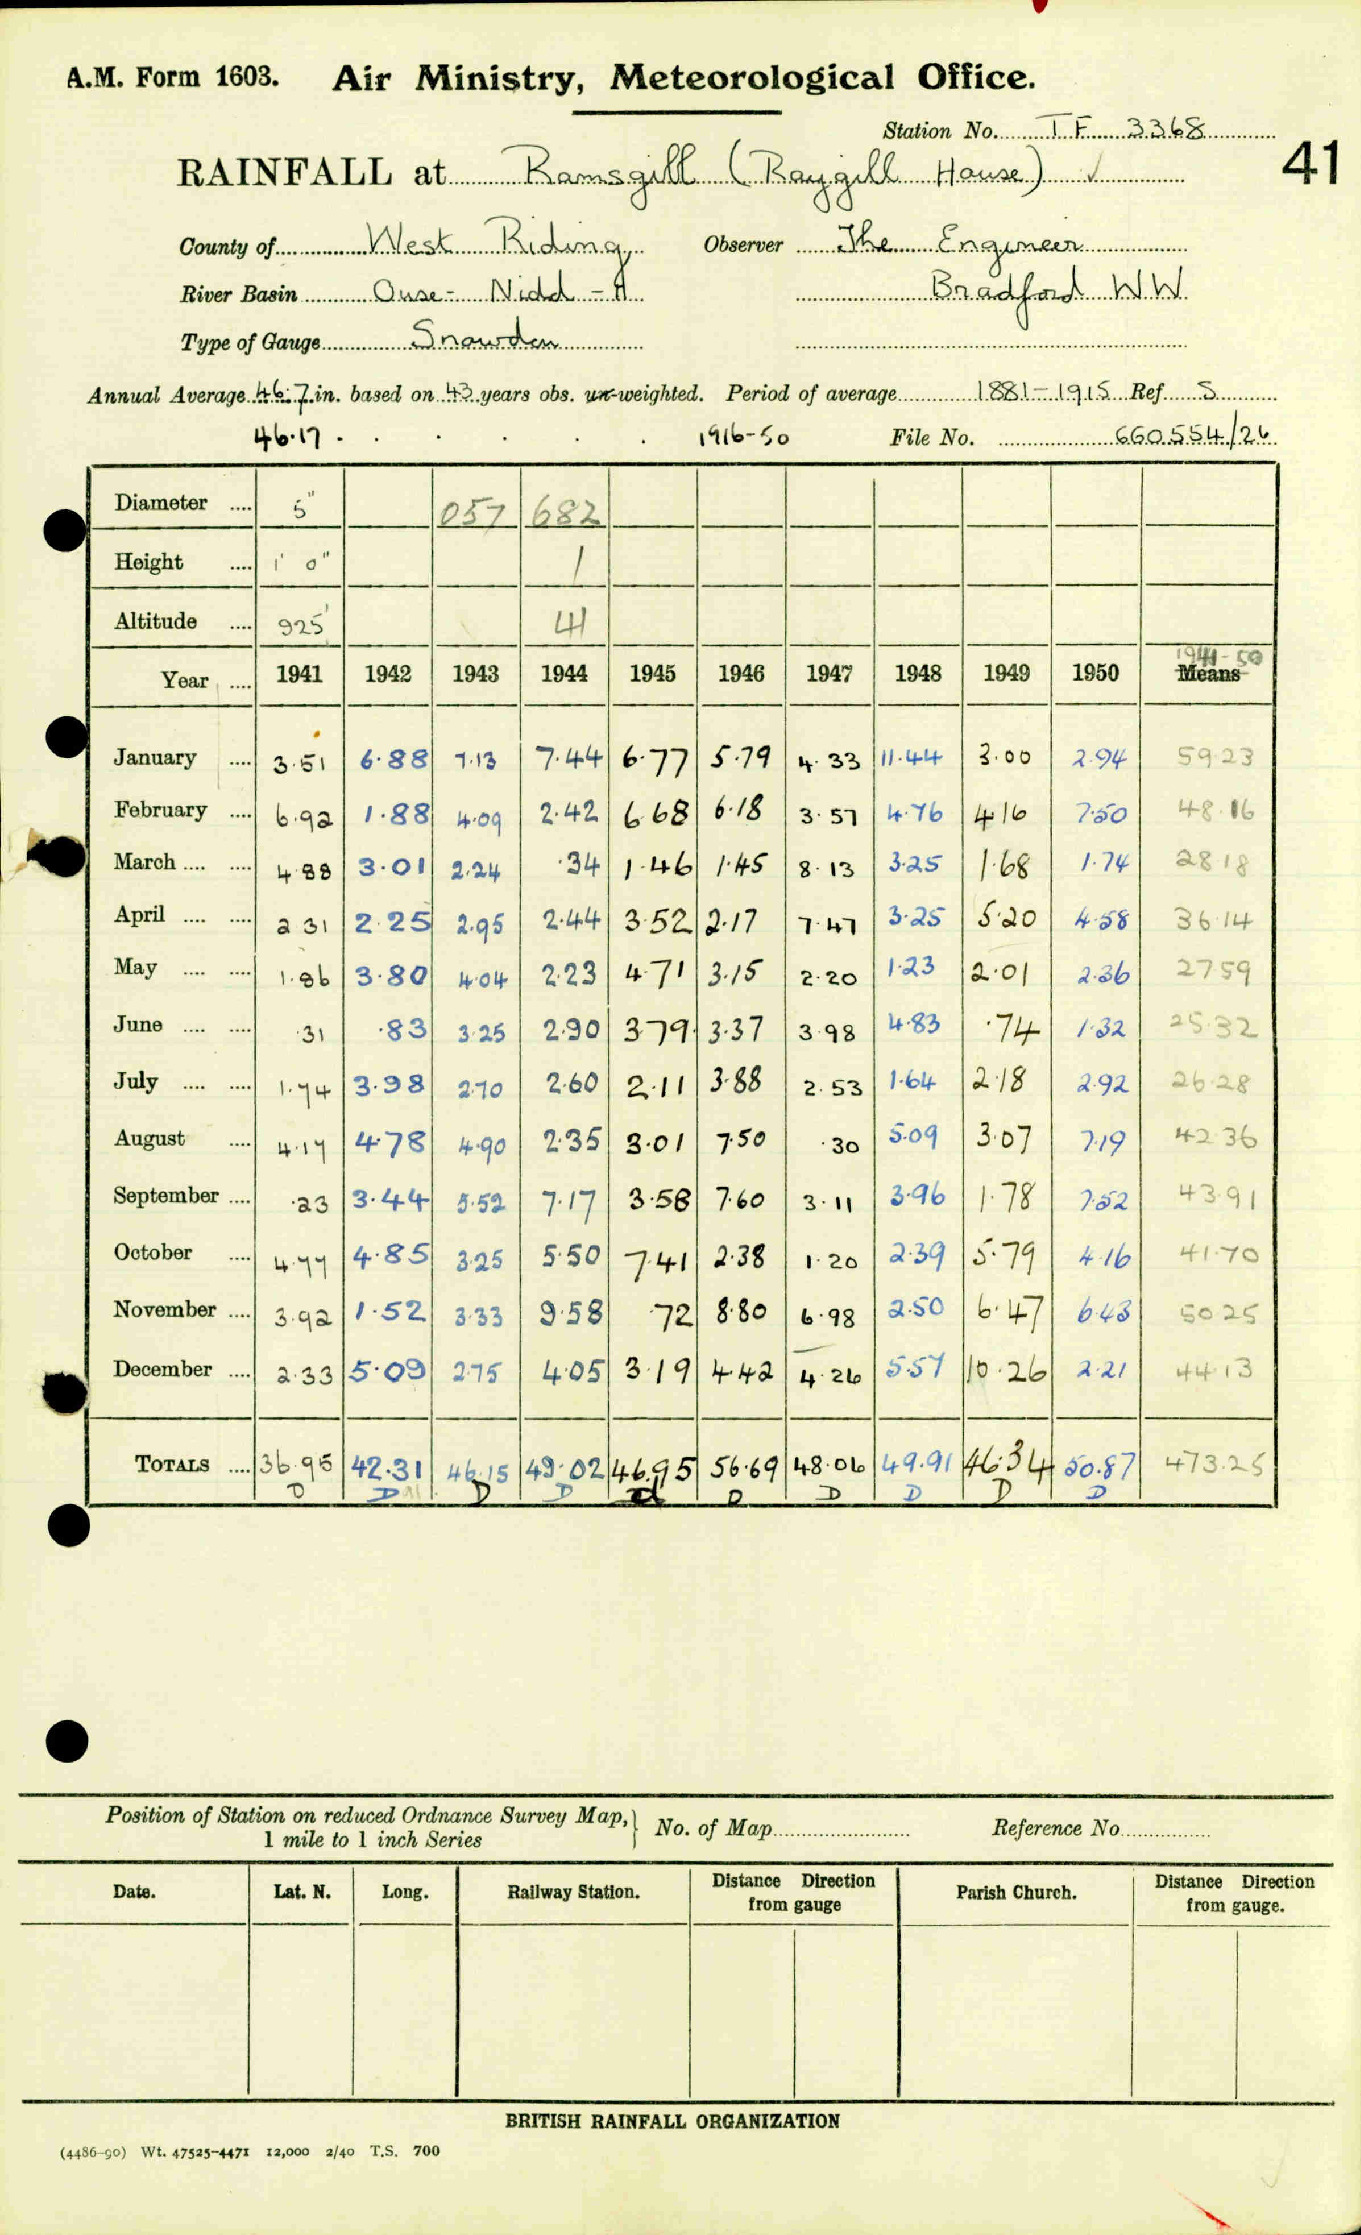 A.M. Form 1603. Air Ministry, Meteorological Office.
Station No. TF 3368
41
RAINFALL at Ramsgill (Raygill House) ✓
County of West Riding Observer The Engineer
River Basin Ouse - Nidd - A Bradford WW
Type of Gauge Snowdon
Annual Average 46.7 in. based on 43 years obs. un-weighted. Period of average 1881-1915 Ref. S
46.17 . . . . . 1916-50 File No. 660554/26
Diameter .... 5" 057 682
Height .... 1' 0" 1
Altitude .... 925' 41
1941-50
Year .... 1941 1942 1943 1944 1945 1946 1947 1948 1949 1950 Means
January .... 3.51 6.88 7.13 7.44 6.77 5.79 4.33 11.44 3.00 2.94 59.23
February .... 6.92 1.88 4.09 2.42 6.68 6.18 3.57 4.76 4.16 7.50 48.16
March .... .... 4.88 3.01 2.24 .34 1.46 1.45 8.13 3.25 1.68 1.74 28.18
April .... .... 2.31 2.25 2.95 2.44 3.52 2.17 7.47 3.25 5.20 4.58 36.14
May .... .... 1.86 3.80 4.04 2.23 4.71 3.15 2.20 1.23 2.01 2.36 27.59
June .... .... .31 .83 3.25 2.90 3.79 3.37 3.98 4.83 .74 1.32 25.32
July .... .... 1.74 3.98 2.70 2.60 2.11 3.88 2.53 1.64 2.18 2.92 26.28
August .... 4.17 4.78 4.90 2.35 3.01 7.50 .30 5.09 3.07 7.19 42.36
September .... .23 3.44 5.52 7.17 3.58 7.60 3.11 3.96 1.78 7.52 43.91
October .... 4.77 4.85 3.25 5.50 7.41 2.38 1.20 2.39 5.79 4.16 41.70
November .... 3.92 1.52 3.33 9.58 .72 8.80 6.98 2.50 6.47 6.43 50.25
December .... 2.33 5.09 2.75 4.05 3.19 4.42 4.26 5.57 10.26 2.21 44.13
TOTALS .... 36.95 42.31 46.15 49.02 46.95 56.69 48.06 49.91 46.34 50.87 473.25
D D D D d D D D D D
Position of Station on reduced Ordnance Survey Map,
1 mile to 1 inch Series } No. of Map Reference No
Date. Lat. N. Long. Railway Station. Distance Direction from gauge Parish Church. Distance Direction from gauge.
BRITISH RAINFALL ORGANIZATION
(4486-90) Wt. 47525-4471 12,000 2/40 T.S. 700